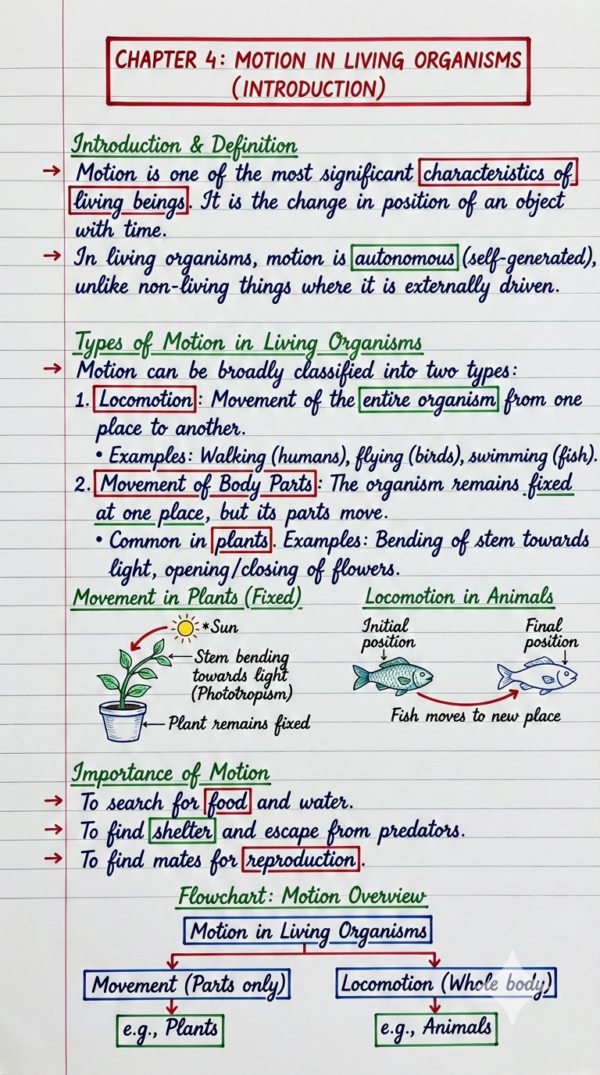 CHAPTER 4: MOTION IN LIVING ORGANISMS
(INTRODUCTION)
Introduction & Definition
→ Motion is one of the most significant characteristics of
living beings. It is the change in position of an object
with time.
→ In living organisms, motion is autonomous (self-generated),
unlike non-living things where it is externally driven.
Types of Motion in Living Organisms
→ Motion can be broadly classified into two types:
1. Locomotion: Movement of the entire organism from one
place to another.
• Examples: Walking (humans), flying (birds), swimming (fish).
2. Movement of Body Parts: The organism remains fixed
at one place, but its parts move.
• Common in plants. Examples: Bending of stem towards
light, opening/closing of flowers.
Movement in Plants (Fixed)
*Sun
Stem bending
towards light
(Phototropism)
Plant remains fixed
Locomotion in Animals
Initial
position
Final
position
Fish moves to new place
Importance of Motion
→ To search for food and water.
→ To find shelter and escape from predators.
→ To find mates for reproduction.
Flowchart: Motion Overview
Motion in Living Organisms
Movement (Parts only)
Locomotion (Whole body)
e.g., Plants
e.g., Animals